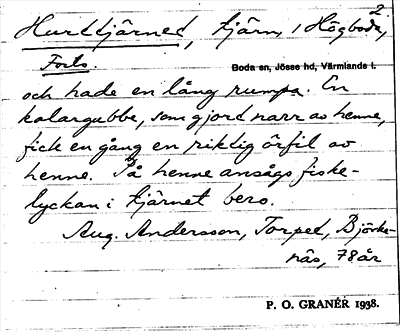 2
Hurttjärnet, tjärn, i Högboda,
Forts.
Boda sn, Jösse hd, Värmlands l.
och hade en lång rumpa. En
kolargubbe, som gjort narr av henne,
fick en gång en riktig örfil av
henne. På henne ansågs fiske-
lyckan i tjärnet bero.
Aug. Andersson, Torped, Björke-
näs, 78 år
P. O. GRANÉR 1938.